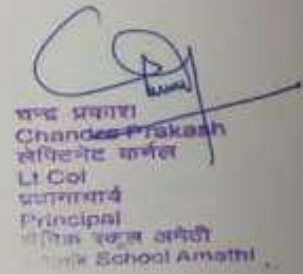 चन्द्र प्रकाश
Chandra Prakash
लेफ्टिनेंट कर्नल
Lt Col
प्रधानाचार्य
Principal
सैनिक स्कूल अमेठी
School Amethi